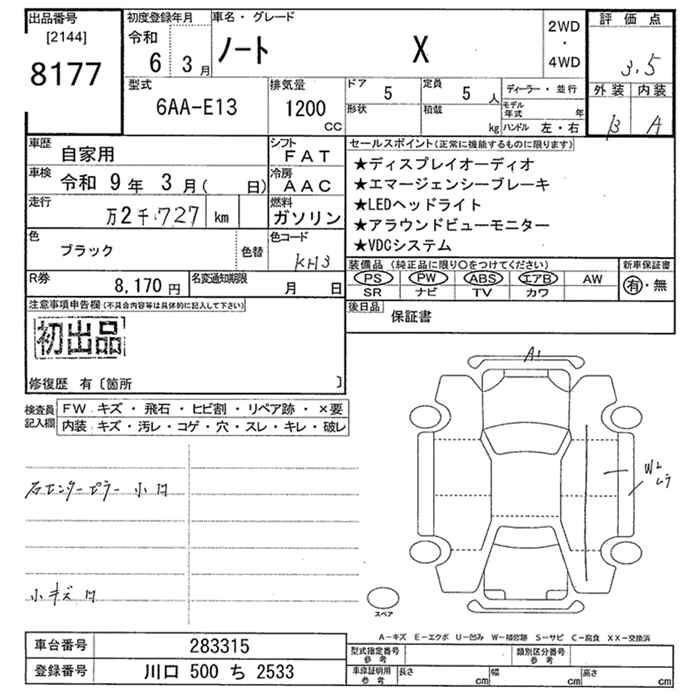 出品番号
[2144]
8177
初度登録年月
令和
6 3 月
車名・グレード
ノート X
2WD
・
4WD
評価点
3.5
外装 内装
B A
型式
6AA-E13
排気量
1200
CC
ドア 5
形状
定員 5 人
積載 kg
ディーラー・並行
モデル年式 年
ハンドル 左・右
車歴 自家用
シフト FAT
車検 令和 9 年 3 月 ( 日)
冷房 AAC
走行 万2千727 km
燃料 ガソリン
色 ブラック 色替
色コード KH3
セールスポイント(正常に機能するものに限ります)
★ディスプレイオーディオ
★エマージェンシーブレーキ
★LEDヘッドライト
★アラウンドビューモニター
★VDCシステム
R券 8,170 円
名変通知期限 月 日
装備品(純正品に限り○をつけてください)
PS PW ABS エアB AW
SR ナビ TV カワ
新車保証書
有・無
注意事項申告欄(不具合内容等は具体的に記入して下さい)
初出品
修復歴 有〔箇所 〕
後日品 保証書
検査員記入欄
FW キズ・飛石・ヒビ割・リペア跡・×要
内装 キズ・汚レ・コゲ・穴・スレ・キレ・破レ
A1
W2
ムラ
右センターピラー小凹
小キズ凹
スペア
A-キズ E-エクボ U-凹み W-補修跡 S-サビ C-腐食 XX-交換済
車台番号 283315
登録番号 川口 500 ち 2533
型式指定番号 参考
類別区分番号 参考
車庫証明用 参考
長さ cm
幅 cm
高さ cm